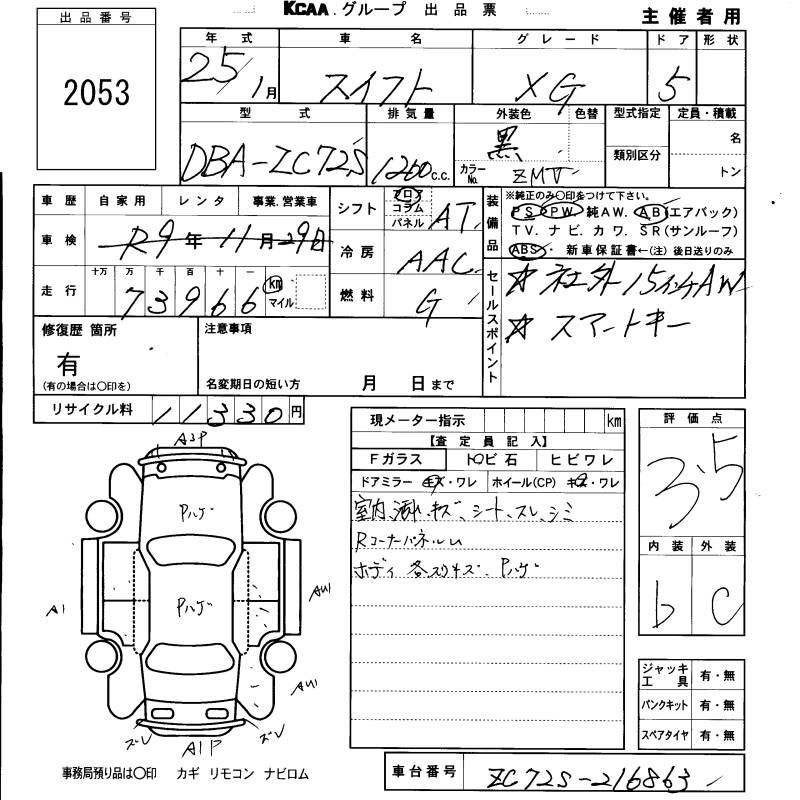 KCAA.グループ 出品票
主催者用
出品番号
2053
年式 車名 グレード ドア 形状
25/1月 スイフト XG 5
型式 排気量 外装色 色替 型式指定 定員・積載
DBA-ZC72S 1200 c.c. 黒 カラーNo. ZMV 類別区分 名
トン
車歴 自家用 レンタ 事業.営業車 シフト フロア コラム パネル AT
装備品 ※純正のみ○印をつけて下さい。
PS PW 純AW. AB(エアバック)
TV. ナビ. カワ. SR(サンルーフ)
ABS・ 新車保証書←(注) 後日送りのみ
車検 R9年11月29日 冷房 AAC
走行 十万 万 千 百 十 一
73966 km マイル 燃料 G
セールスポイント
☆ 社外15インチAW
☆ スマートキー
修復歴 箇所 注意事項
有
(有の場合は○印を) 名変期日の短い方 月 日まで
リサイクル料 11330円
現メーター指示 km
【査定員記入】
Fガラス トビ石 ヒビワレ
ドアミラー キズ・ワレ ホイール(CP) キズ・ワレ
室内汚れ、キズ、シート、スレ、シミ
Rコーナーパネルム
ボディ 各スリキズ、Pハゲ
評価点
3.5
内装 外装
b C
ジャッキ工具 有・無
パンクキット 有・無
スペアタイヤ 有・無
A3P
Pハゲ
Pハゲ
A1
AU1
AU1
ズレ
A1P
ズレ
事務局預り品は○印 カギ リモコン ナビロム
車台番号 ZC72S-216863